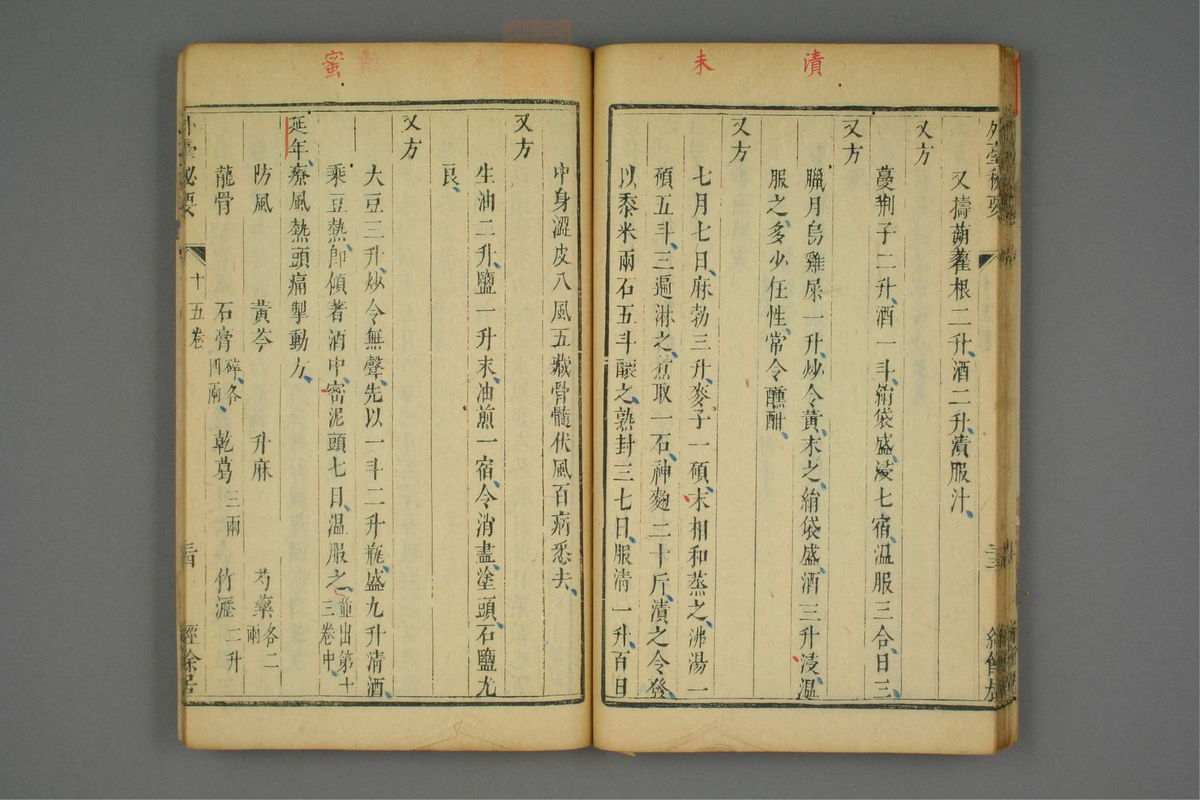 漬
末
蜜
外臺秘要
又擣蒴藋根二升酒二升漬服汁
又方
蔓荆子二升酒一斗絹袋盛浸七宿温服三合日三
又方
臘月烏雞屎一升炒令黃末之絹袋盛酒三升浸温
服之多少任性常令醺酣
又方
七月七日麻勃三升麥子一碩末相和蒸之沸湯一
碩五斗三遍淋之煮取一石神麴二十斤漬之令發
以黍米兩石五斗釀之熟封三七日服清一升百日
中身澀皮八風五藏骨髓伏風百病悉去
又方
生油二升鹽一升末油煎一宿令消盡塗頭石鹽尤
良
又方
大豆三升炒令無聲先以一斗二升瓶盛九升清酒
乘豆熱卽傾著酒中密泥頭七日温服之並出第十三卷中
延年療風熱頭痛掣動方
防風 黃芩 升麻 芍藥各二兩
龍骨 石膏碎各四兩 乾葛三兩 竹瀝二升
外臺秘要 十五卷 經餘居